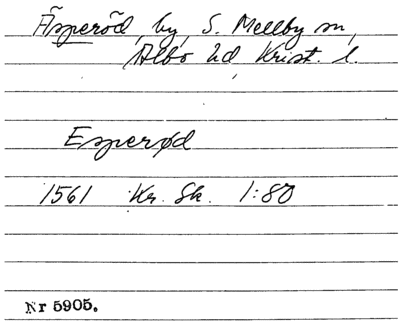 Äsperöd, by, S. Mellby sn,
Albo hd, Krist. l.
Esperød
1561 Kr. Sk. 1:80
Nr 5905.